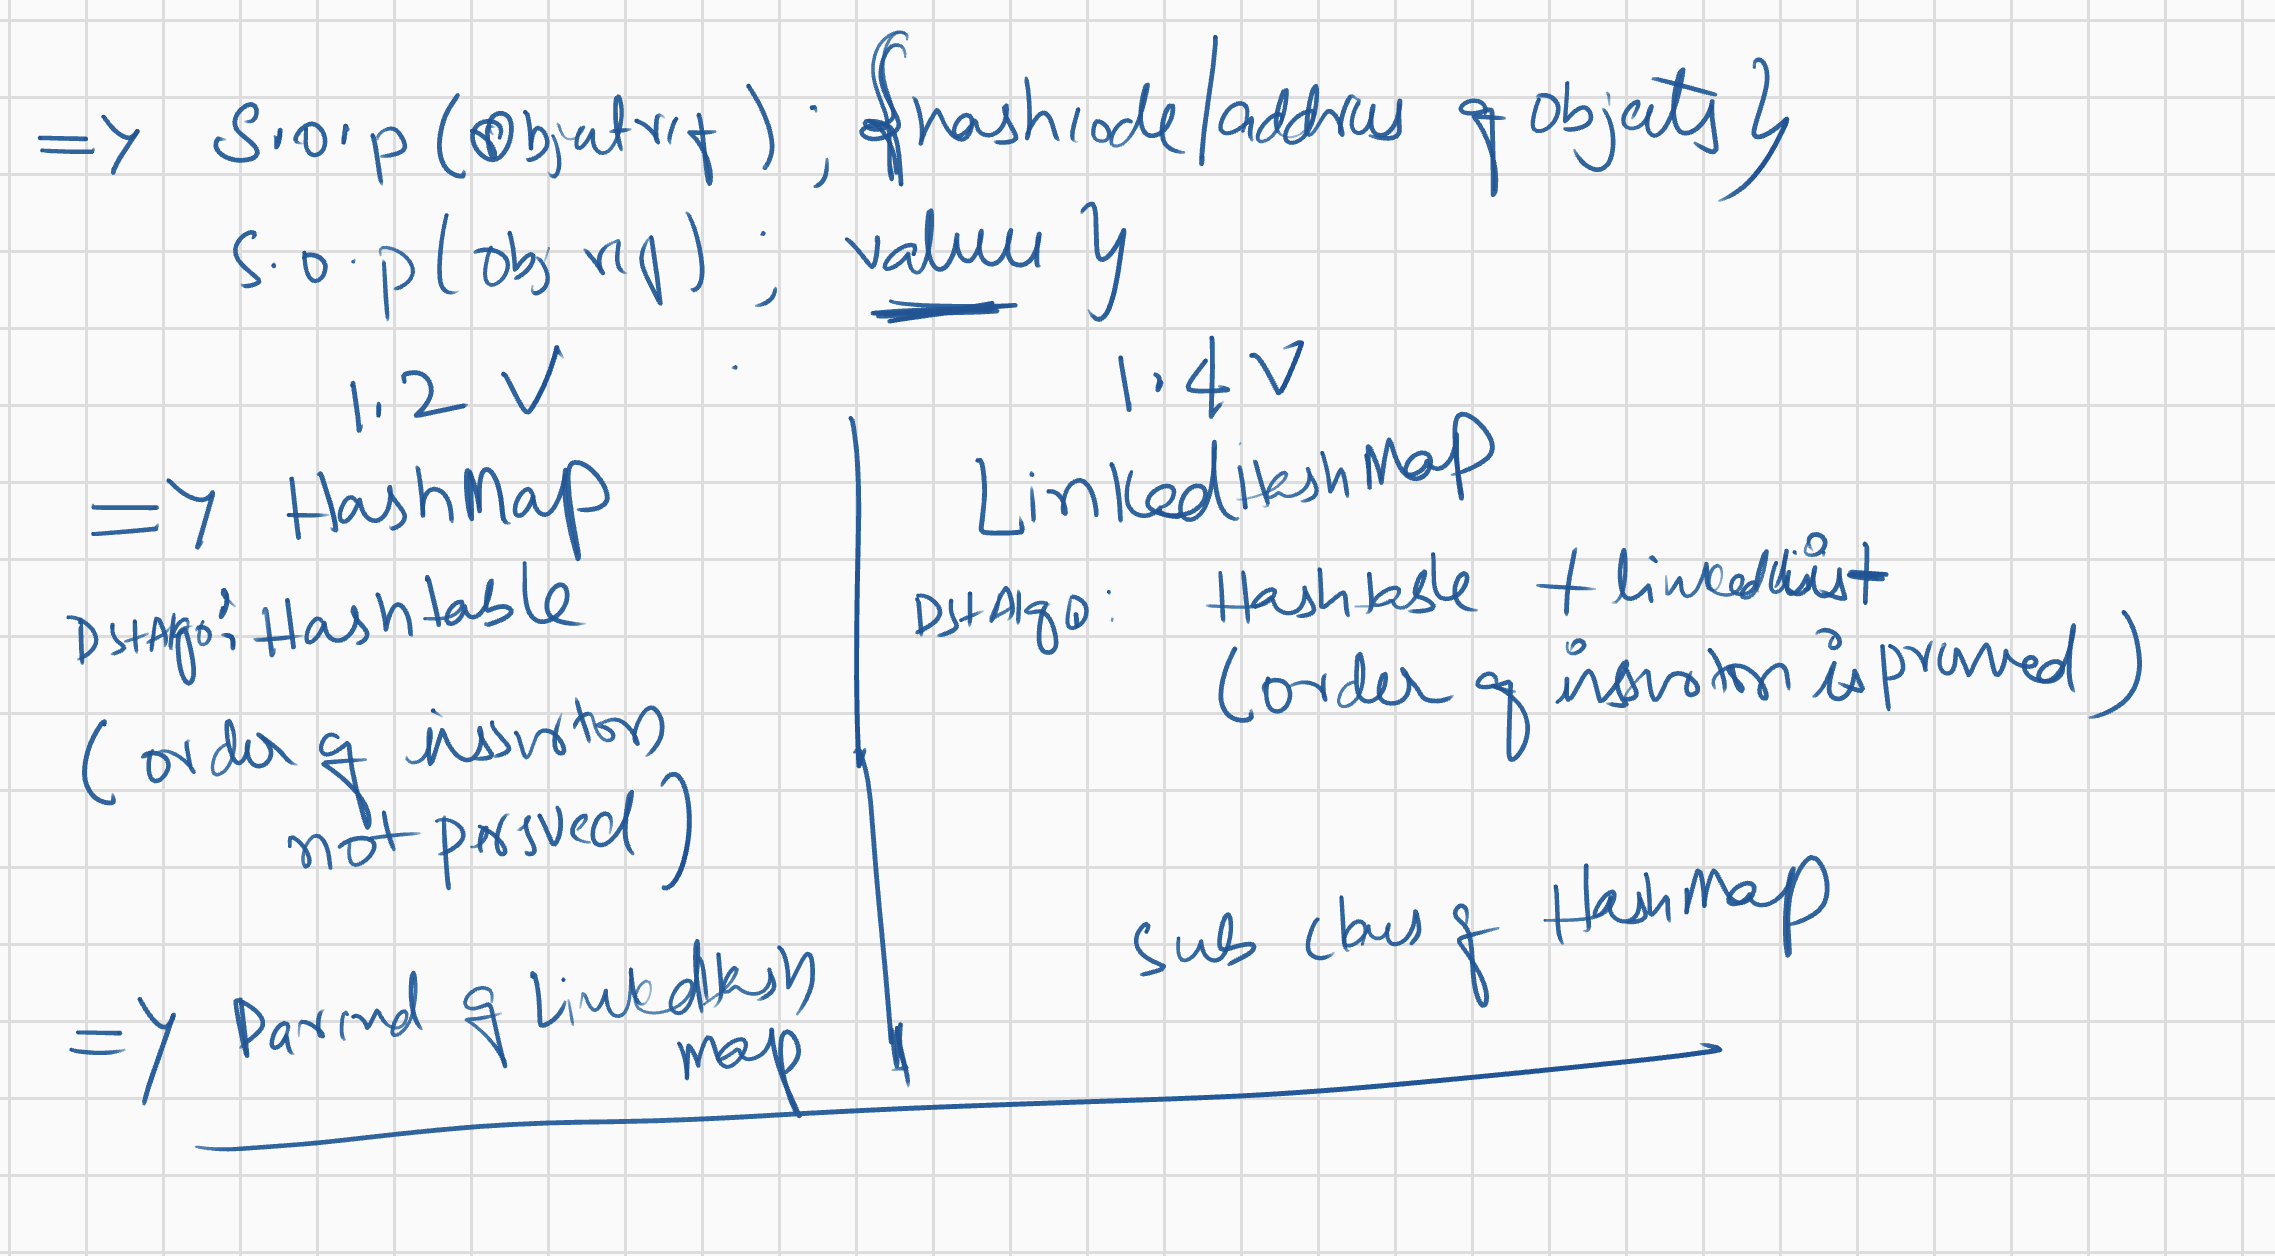 => S.o.p (Objectref) ; {hashcode/address of objects}
S.o.p (obj ref) ; values }
1.2 V
=> HashMap
DS+Algo: Hashtable
(order of insertion
not persved)
=> Parrend of LinkedHash
map
1.4 V
LinkedHashMap
DS+Algo: Hashtable + linkedlist
(order of insertion is preserved)
sub class of HashMap